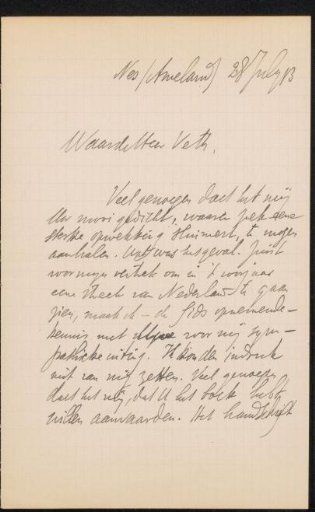 Nes (Ameland) 28 July 13
Waarde Heer Veth,
Veel genoegen doet het mij
Uw mooi gedicht, waarin zek eene
sterke opwekking sluimert, te mogen
aanhalen. was het geval. Juist
voor mijn vertrek om in 't voorjaar
eene streek van Nederland te gaan
zien, maakte ik de
kennis met voor mij sym-
pathieke uiting. Ik kon den indruk
niet van mij zetten. Veel genoegen
doet het mij, dat U het boek hebt
willen aanvaarden. Het handschrift